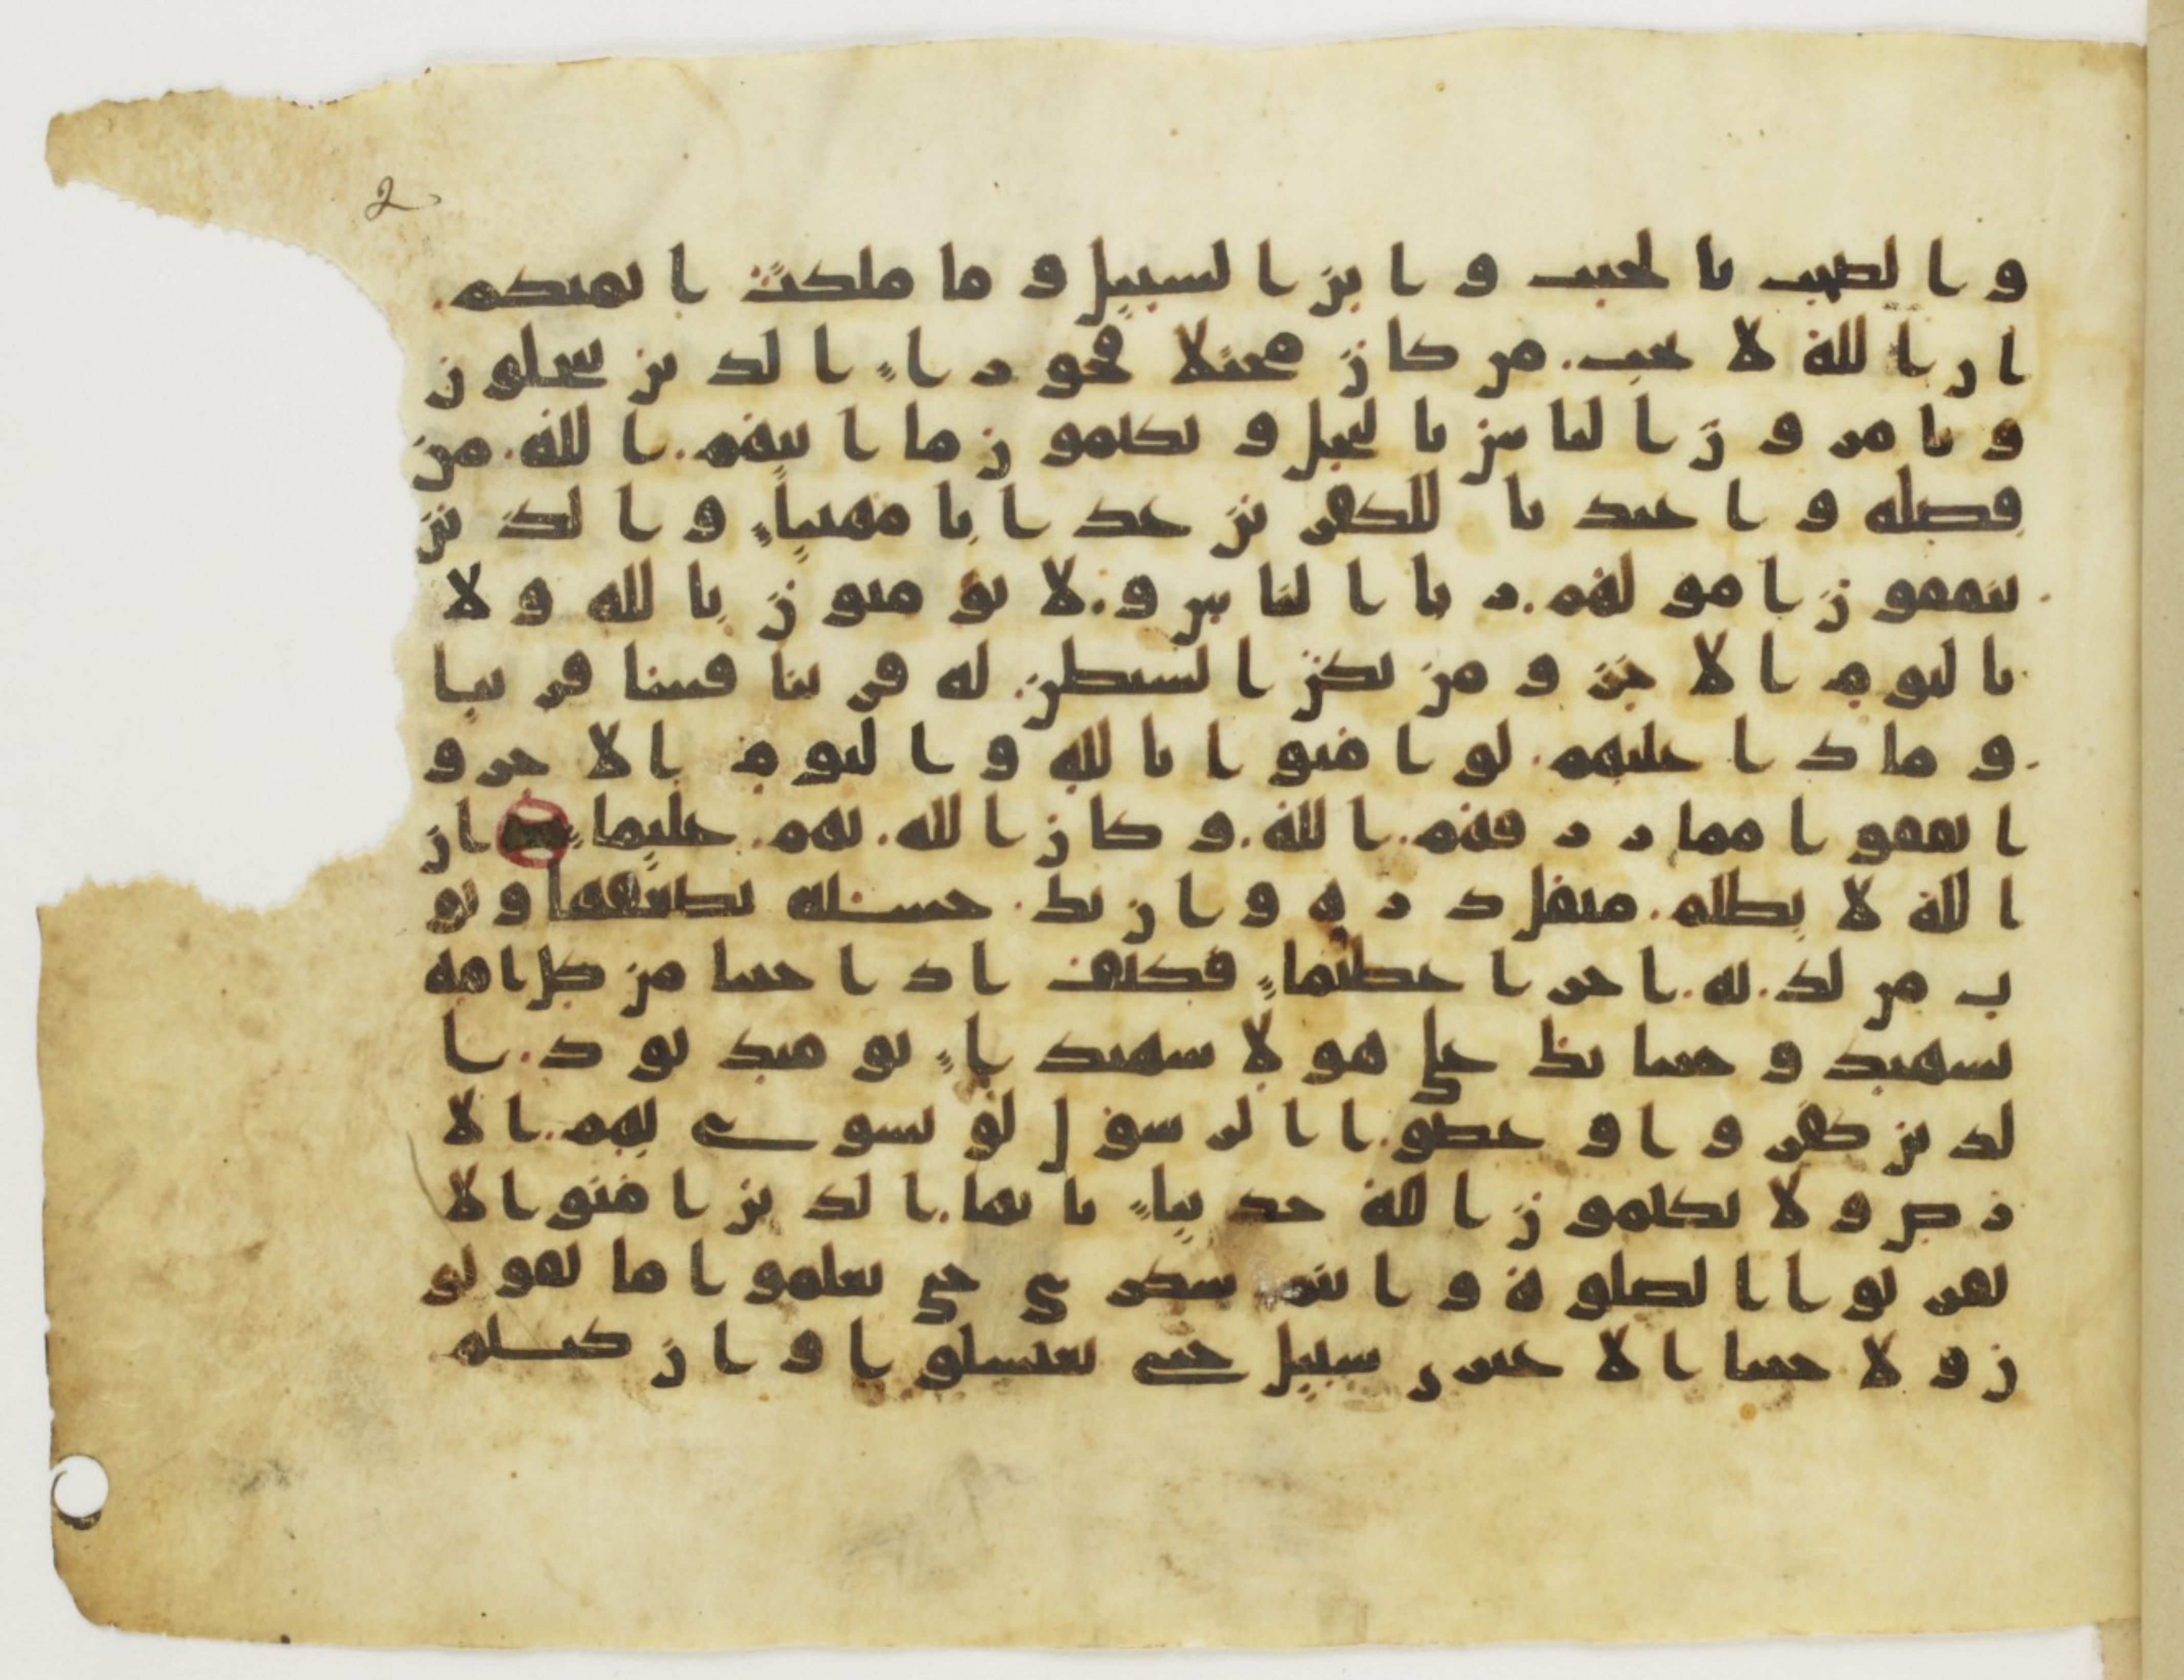 2
والصحب بالجنب وابن السبيل وما ملكت ايمنكم
ان الله لا يحب من كان محتلا فخورا الذين يبخلون
ويامرون الناس بالبخل ويكتمون ما اتيهم الله من
فضله واعتدنا للكفرين عذابا مهينا والذين
ينفقون امولهم ريا الناس ولا يومنون بالله ولا
باليوم الاخر ومن يكن الشيطن له قرينا فسا قرينا
وماذا عليهم لو امنوا بالله واليوم الاخر و
انفقوا مما رزقهم الله وكان الله بهم عليما ان
الله لا يظلم مثقل ذره وان تك حسنه يضعفها ويو
ت من لدنه اجرا عظيما فكيف اذا جينا من كل امه
بشهيد وجينا بك على هولا شهيدا يوميذ يود ا
لذين كفروا وعصوا الرسول لو تسوى بهم الا
رض ولا يكتمون الله حديثا يايها الذين امنوا لا
تقربوا الصلوة وانتم سكرى حتى تعلموا ما تقولو
ن ولا جنبا الا عبرى سبيل حتى تغتسلوا وان كنتم